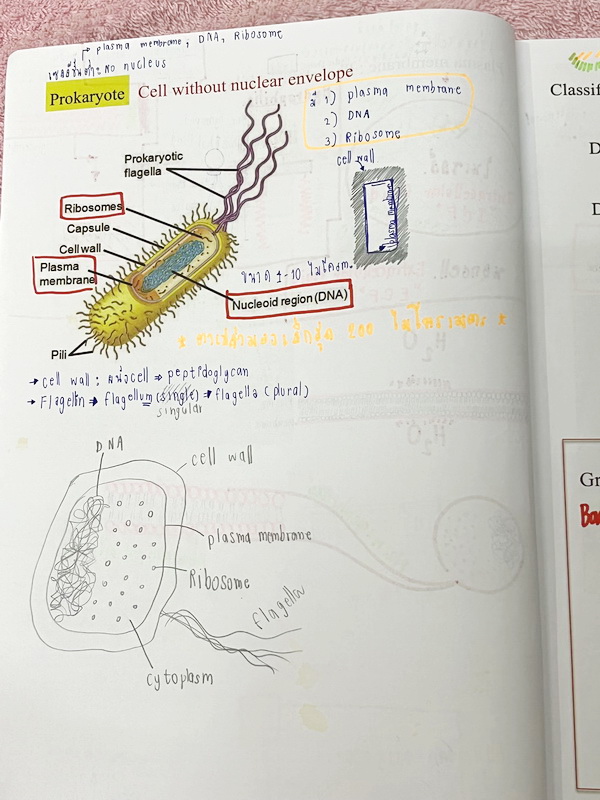 plasma membrane, DNA, Ribosome
เซลล์ชั้นต่ำ: No nucleus
Prokaryote Cell without nuclear envelope
มี 1) plasma membrane
2) DNA
3) Ribosome
cell wall
plasma membrane
Prokaryotic
flagella
Ribosomes
Capsule
Cell wall
Plasma
membrane
ขนาด 1-10 ไมโครม.
Nucleoid region (DNA)
Pili
→ cell wall : ผนังcell ⇒ peptidoglycan
→ Flagellin → flagellum (single) → flagella (plural)
singular
DNA
cell wall
plasma membrane
Ribosome
flagella
cytoplasm
Classif
D
D
Gr
Ba